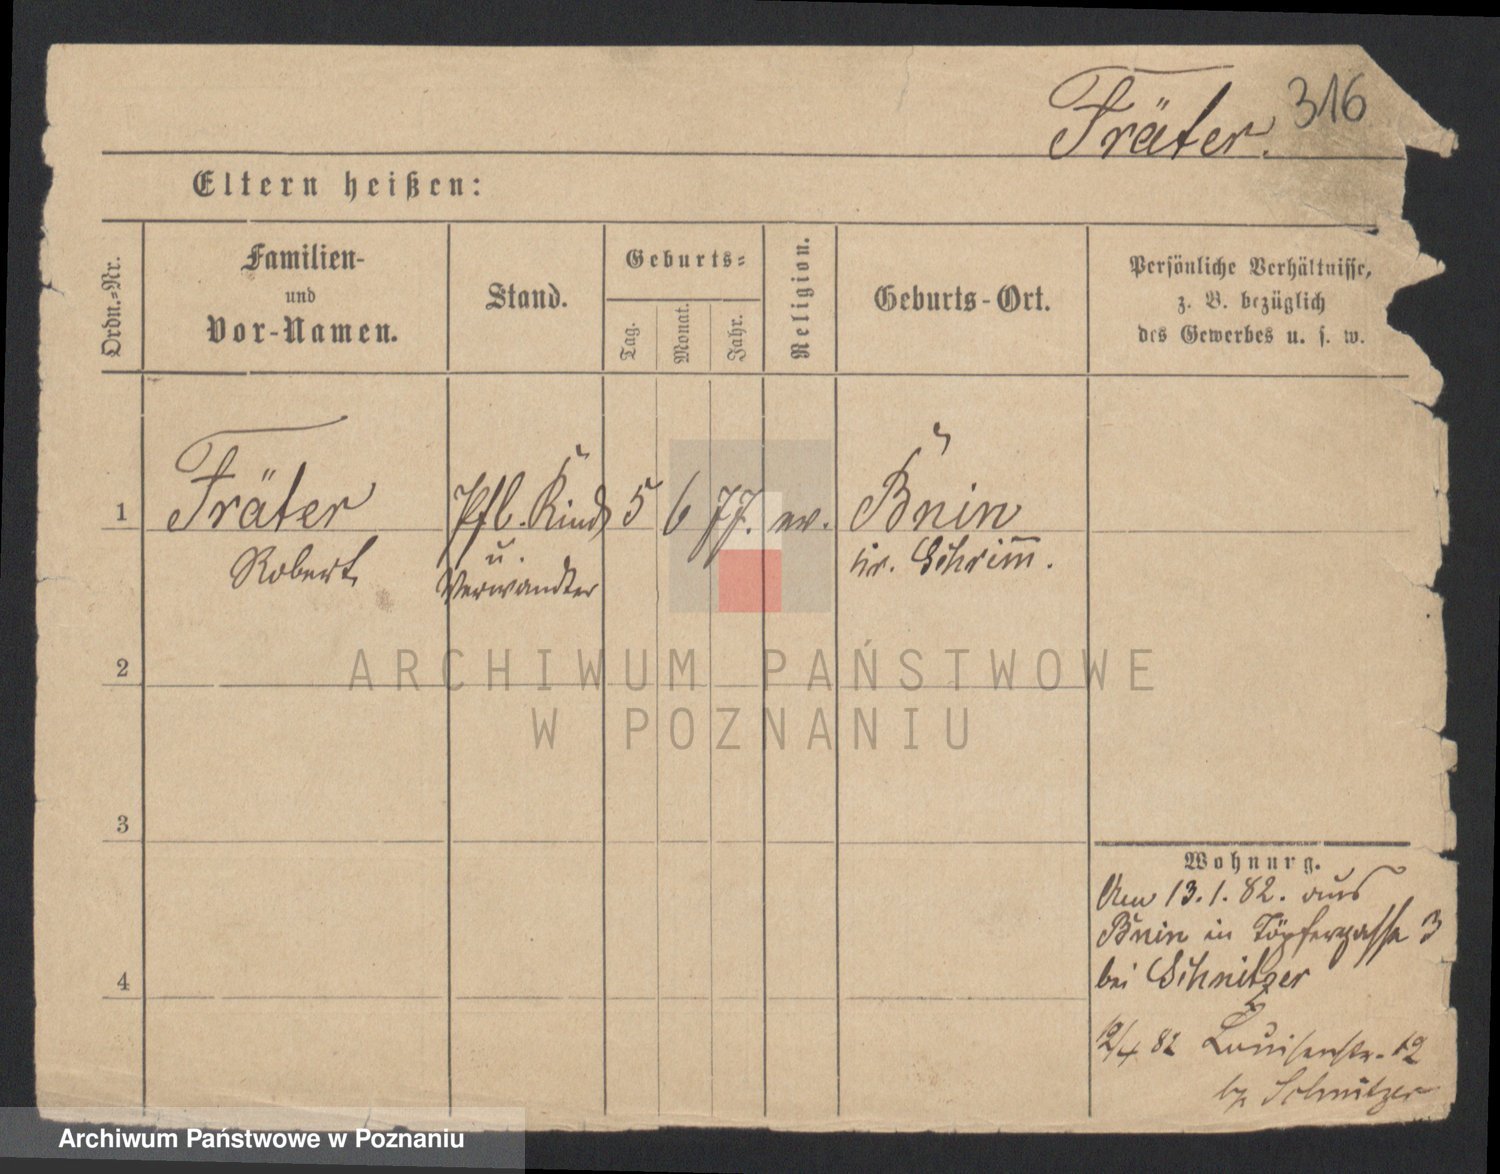 Fräter. 316
Eltern heißen:
Ordn.-Nr.
Familien-
und
Vor-Namen.
Stand.
Geburts-
Tag.
Monat.
Jahr.
Religion.
Geburts-Ort.
Persönliche Verhältnisse,
z. B. bezüglich
des Gewerbes u. s. w.
1 Fräter Pfl. Kind 5 6 77. ev. Bnin
Robert u. Kr. Schrimm.
Verwandter
2
3
4
Wohnung.
Am 13.1.82. aus
Bnin in Töpfergasse 3
bei Schnitzer
12/4 82 Louisenstr. 12
b/ Schnitzer
ARCHIWUM PAŃSTWOWE
W POZNANIU
Archiwum Państwowe w Poznaniu